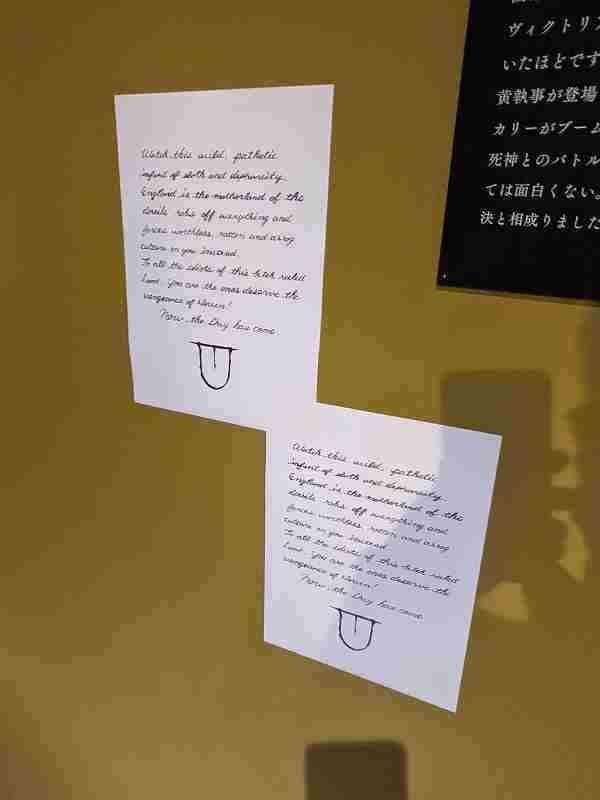 Watch this wild, pathetic
infant of sloth and depravity.
England is the motherland of the
off everything and
forces worthless, rotten and
culture on you instead.
To all the idiots of this bitch ruled
Land, you are the ones deserve the
vengeance of Heaven!
Now, the Day has come
Watch this wild, pathetic
infant of sloth and depravity.
England is the motherland of the
off everything and
forces worthless, rotten and
culture on you instead.
To all the idiots of this bitch ruled
Land, you are the ones deserve the
vengeance of Heaven!
Now, the Day has come
ヴィクトリ
いたほどです
黄執事が登場
カリーがブーム
死神とのバトル
ては面白くない。
決と相成りました